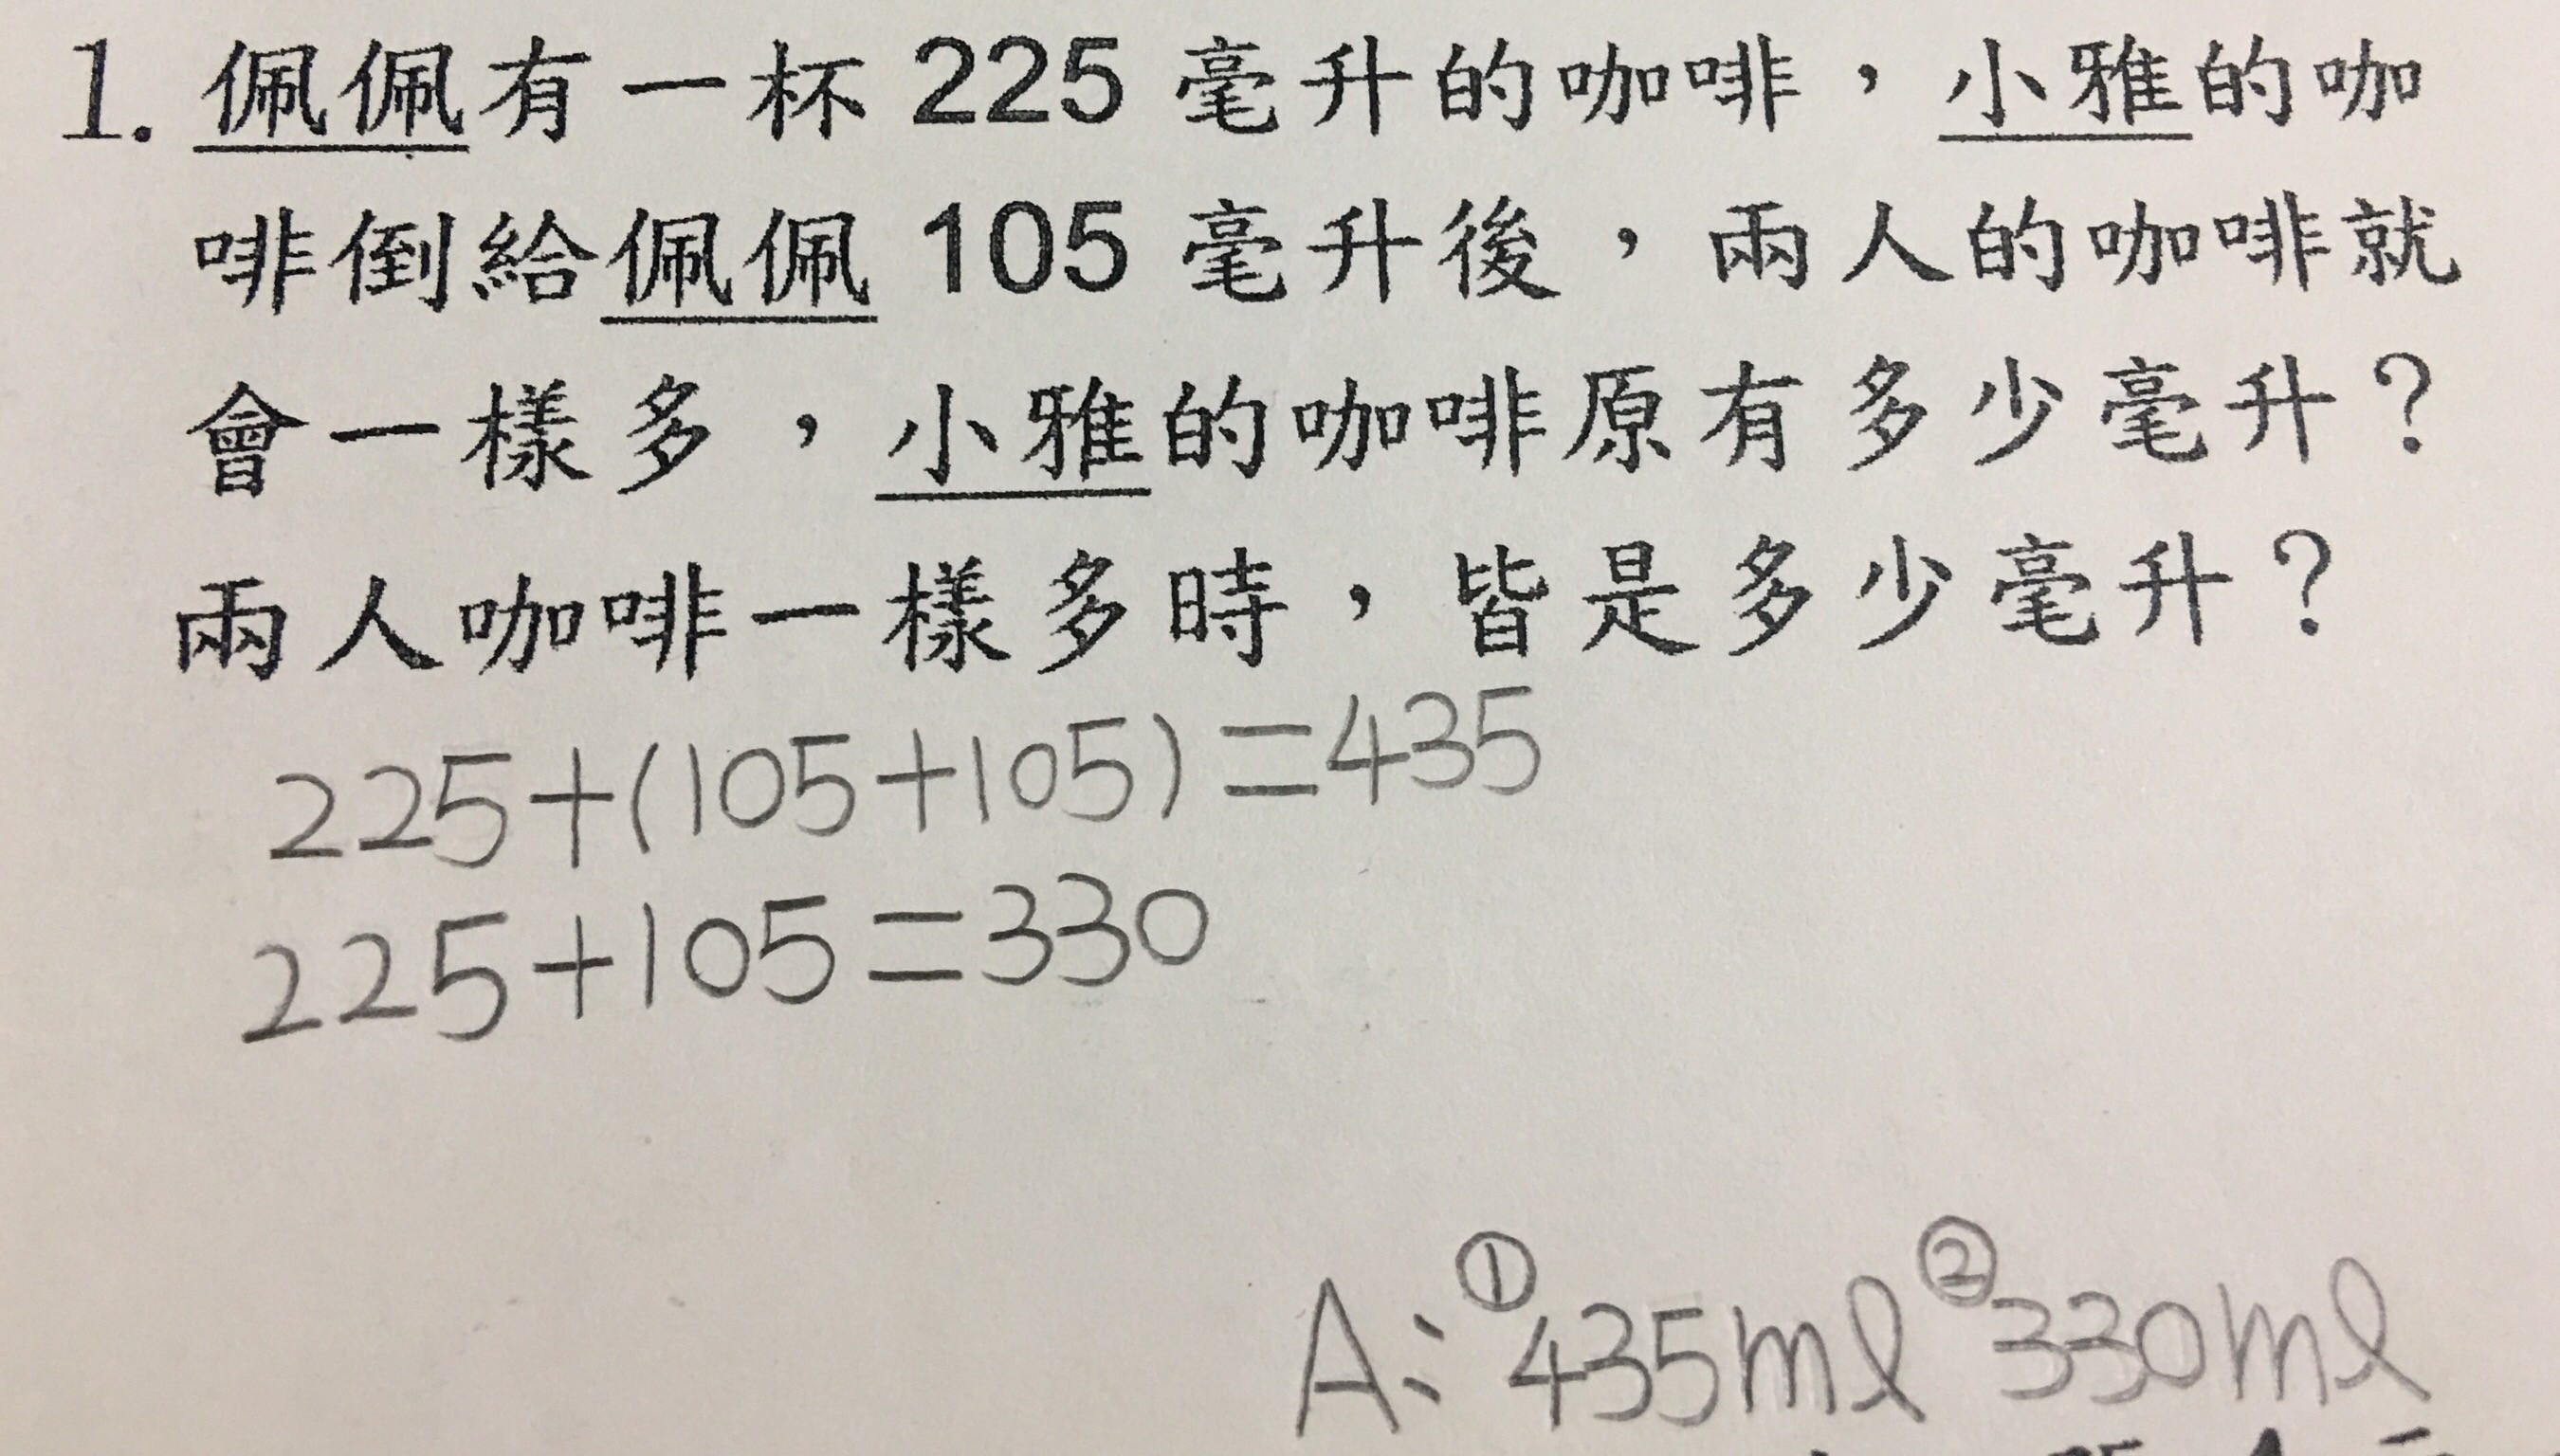 1. 佩佩有一杯 225 毫升的咖啡，小雅的咖
啡倒給佩佩 105 毫升後，兩人的咖啡就
會一樣多，小雅的咖啡原有多少毫升？
兩人咖啡一樣多時，皆是多少毫升？
225+(105+105)=435
225+105=330
A:①435ml ②330ml